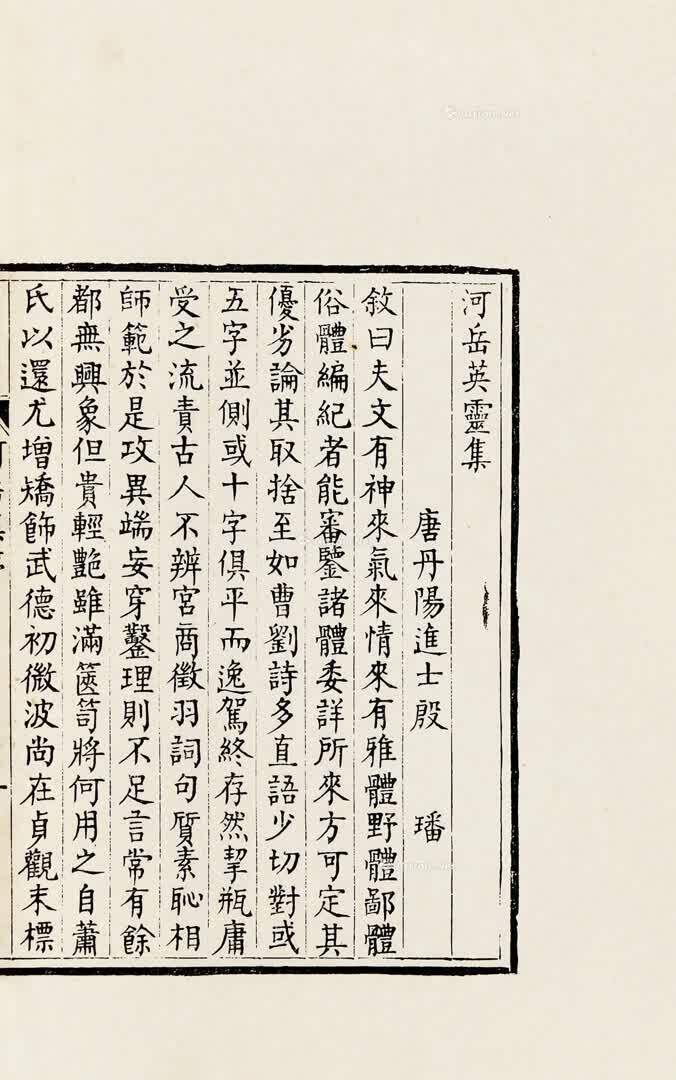 河岳英靈集
唐丹陽進士殷 璠
敘曰夫文有神來氣來情來有雅體野體鄙體
俗體編紀者能審鑒諸體委詳所來方可定其
優劣論其取捨至如曹劉詩多直語少切對或
五字並側或十字俱平而逸駕終存然挈瓶庸
受之流責古人不辨宮商徵羽詞句質素恥相
師範於是攻異端妄穿鑿理則不足言常有餘
都無興象但貴輕艷雖滿篋笥將何用之自蕭
氏以還尤增矯飾武德初微波尚在貞觀末標